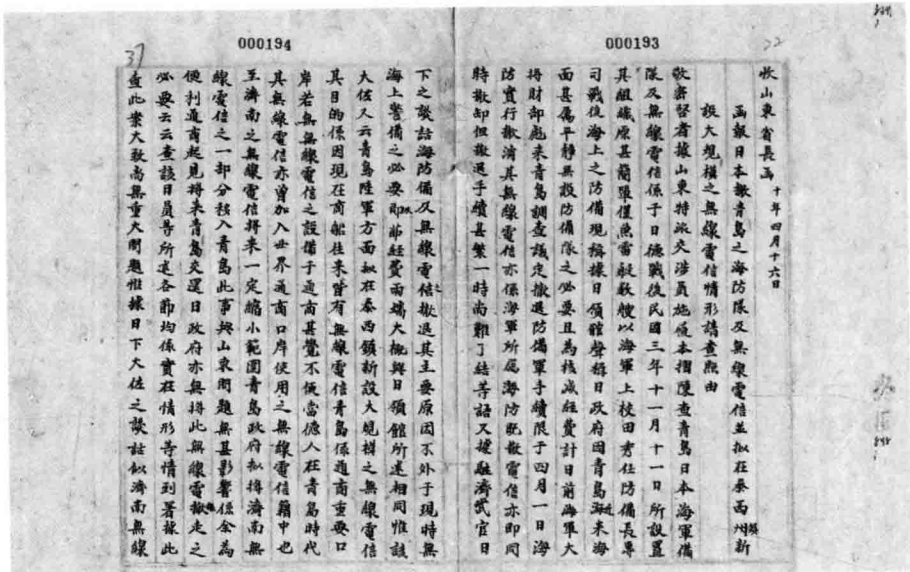 000193
收山東省長函 十年四月十六日
函報日本撤青島之海防隊及無線電信並擬在泰西鎮新
設大規模之無線電信情形請查照由
敬密啓者據山東特派交涉員施履本摺陳查青島日本海軍備
隊及無線電信係于日德戰後民國三年十一月十一日所設置
其組織原甚簡單僅魚雷艇數艘以海軍上校田秀任防備長專
司戰後海上之防備現據日領館聲稱日政府因青島近來海
面甚屬平靜無設防備隊之必要且為核減經費計日前海軍大
將財部彪來青島調查議定撤退防備軍手續限于四月一日海
防實行撤消其無線電信亦係海軍所屬海防既撤電信亦即同
時撤卸但撤退手續甚繁一時尚難了結等語又據駐濟武官日
000194
37
下之談話海防備及無線電信撤退其主要原因不外于現時無
海上警備之必要即節經費兩端大概與日領館所述相同惟該
大佐又云青島陸軍方面擬在泰西鎮新設大規模之無線電信
其目的係因現在商船往來皆有無線電信青島係通商重要口
岸若無無線電信之設備于通商甚覺不便當德人在青島時代
其無線電信亦曾加入世界通商口岸使用之無線電信籍中也
至濟南之無線電信將來一定縮小範圍青島政府擬將濟南無
線電信之一部分移入青島此事與山東問題無甚影響係全為
便利通商起見將來青島交還日政府亦無將此無線電撤走之
必要云云查該日員等所述各節均係實在情形等情到署據此
查此案大致尚無重大問題惟據日下大佐之談話似濟南無線